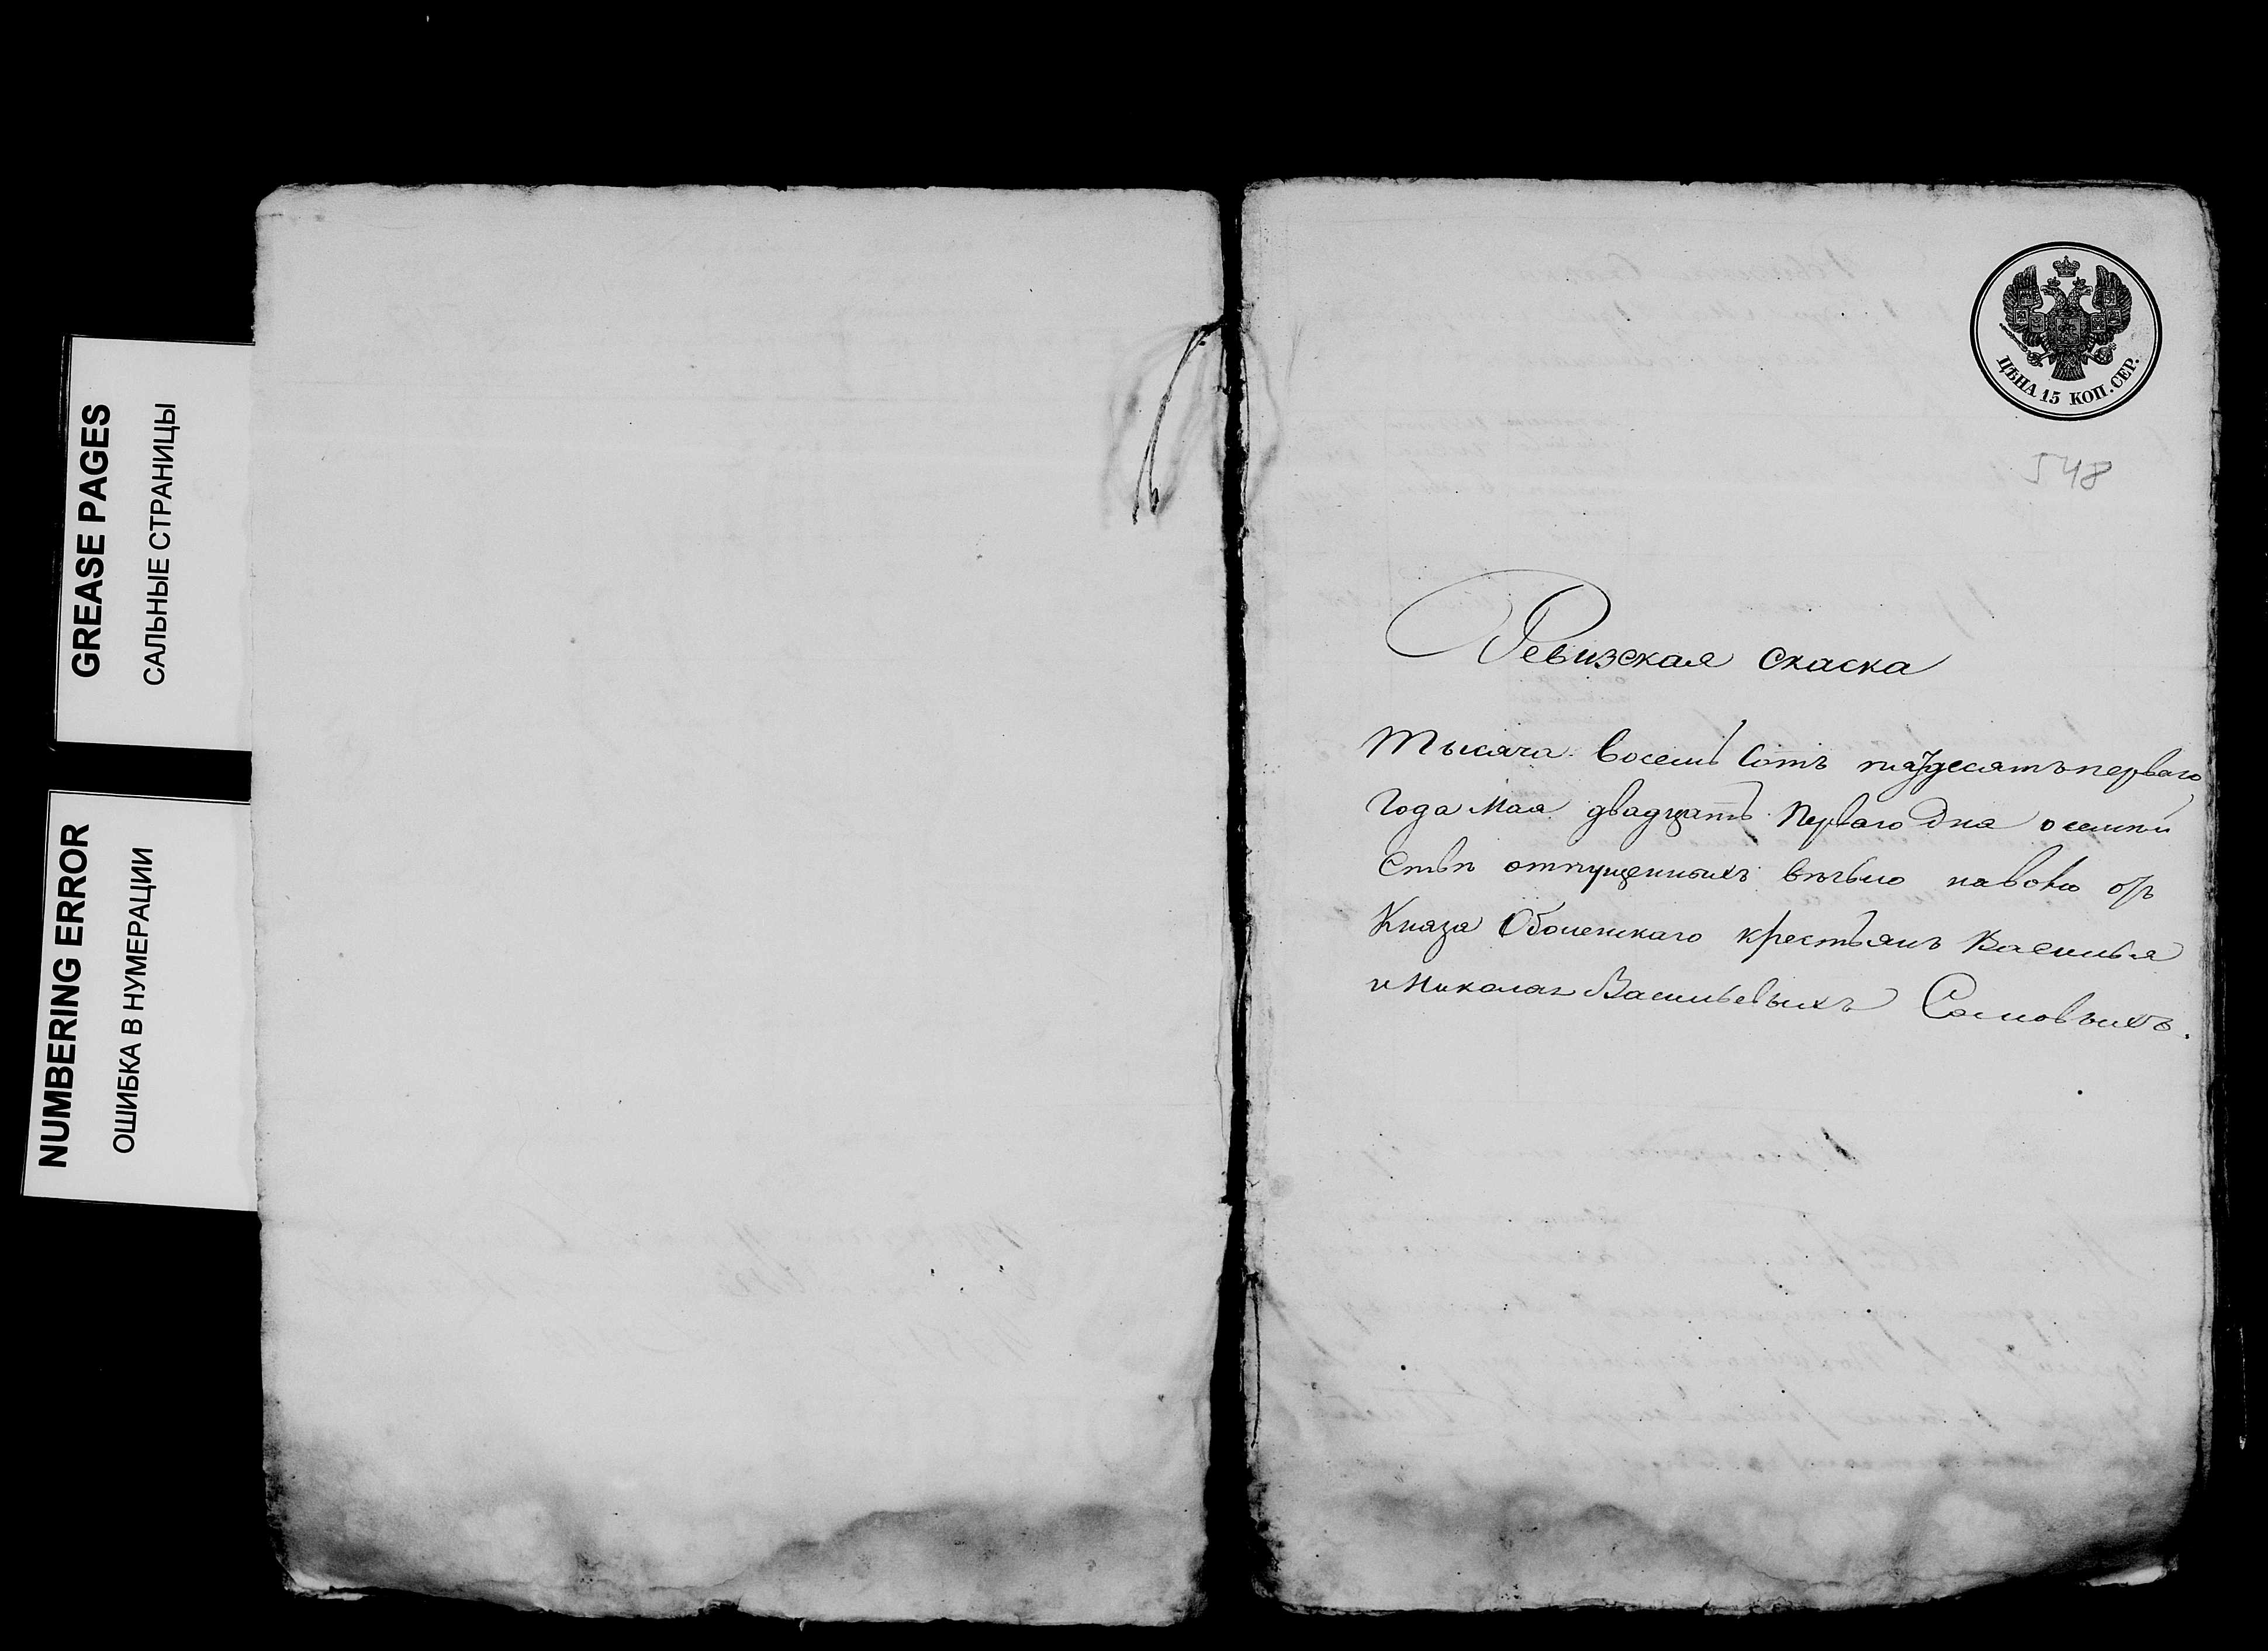 GREASE PAGES
САЛЬНЫЕ СТРАНИЦЫ
NUMBERING ERROR
ОШИБКА В НУМЕРАЦИИ
ЦѢНА 15 КОП. СЕР.
548
Ревизская скаска
Тысяча восемь сотъ пядесятъ перваго
Года Мая двадцать перваго дня о семей
ствѣ отпущенныхъ вѣчьно наволю отъ
Князя Оболенскаго крестьянъ Василья
и Николая Васильевыхъ Сомовыхъ.